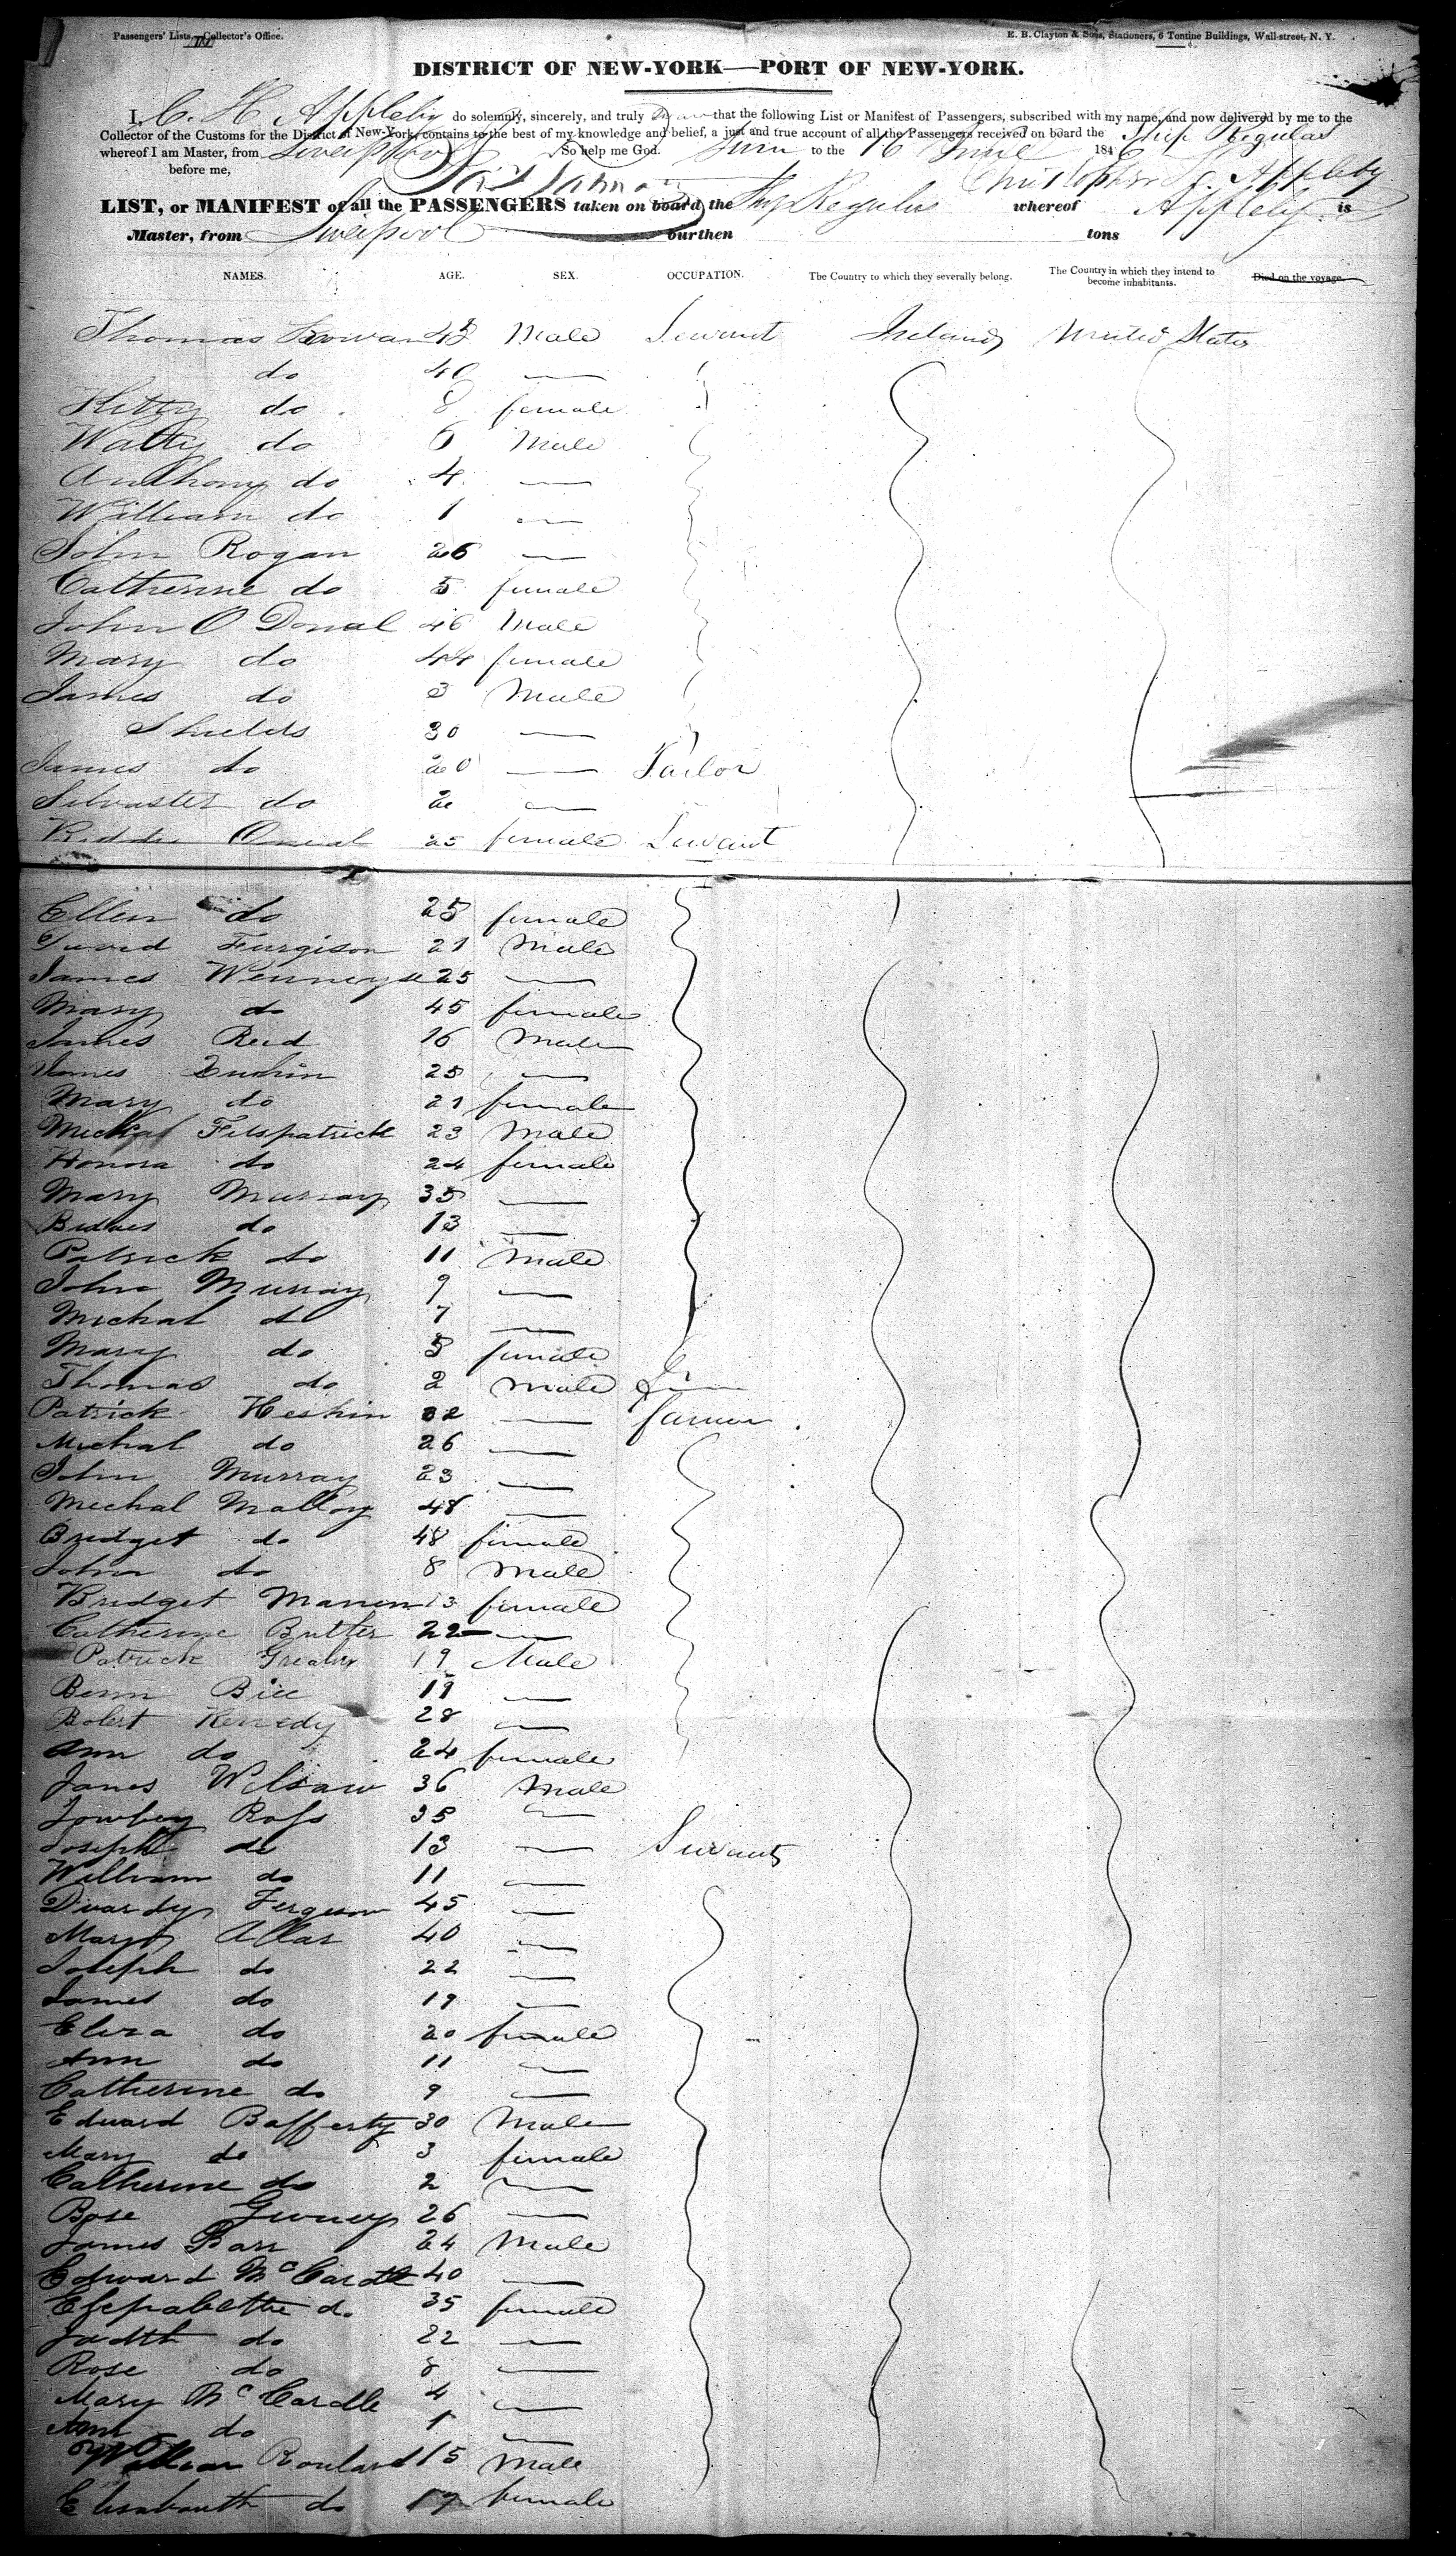 Passengers' Lists, Collector's Office.
E. B. Clayton & Sons, Stationers, 6 Tontine Buildings, Wall-street, N. Y.
DISTRICT OF NEW-YORK—PORT OF NEW-YORK.
I, C. H. Appleby do solemnly, sincerely, and truly that the following List or Manifest of Passengers, subscribed with my name, and now delivered by me to the
Collector of the Customs for the District of New-York, contains to the best of my knowledge and belief, a just and true account of all the Passengers received on board the Ship Regulus
whereof I am Master, from Liverpool So help me God. to the 16 June 184
before me, Christopher H. Appleby
LIST, or MANIFEST of all the PASSENGERS taken on board the Ship Regulus whereof Appleby is
Master, from Liverpool burthen tons
NAMES. AGE. SEX. OCCUPATION. The Country to which they severally belong. The Country in which they intend to become inhabitants. Died on the voyage.
Thomas 48 Male Servant Ireland United States
do 40 —
Kitty do 8 female
Watty do 6 Male
Anthony do 4 —
William do 1 —
John Rogan 26 —
Catherine do 5 female
John O Donal 46 Male
Mary do 44 female
James do 3 Male
Shields 30 —
James do 20 — Tailor
Silvaster do 2 —
25 female Servant
Ellen do 25 female
David Furgison 21 Male
James 25 —
Mary do 45 female
James Reid 16 Male
James 25 —
Mary do 21 female
Michal Fitspatrick 23 Male
Honora do 24 female
Mary Murray 35 —
do 13 —
Patrick do 11 Male
John Murray 9 —
Michal do 7 —
Mary do 5 female
Thomas do 2 Male
Patrick Heskin 32 — farmer
Michal do 26 —
John Murray 23 —
Michal Malloy 48 —
Bridget do 48 female
John do 8 Male
Bridget 13 female
Catherine Butler 22 —
Patrick 19 Male
19 —
Robert Kennedy 28 —
Ann do 24 female
James 36 Male
Ross 35 —
Joseph do 13 — Servants
William do 11 —
Ferguson 45 —
40 —
Joseph do 22 —
James do 19 —
Eliza do 20 female
Ann do 11 —
Catherine do 9 —
Edward Rafferty 30 Male
Mary do 3 female
Catherine do 2 —
Rose 26 —
James Barr 24 Male
Edward McCardle 40 —
do 35 female
Judith do 22 —
Rose do 8 —
Mary McCardle 4 —
Ann do 1 —
William 15 Male
do 17 female